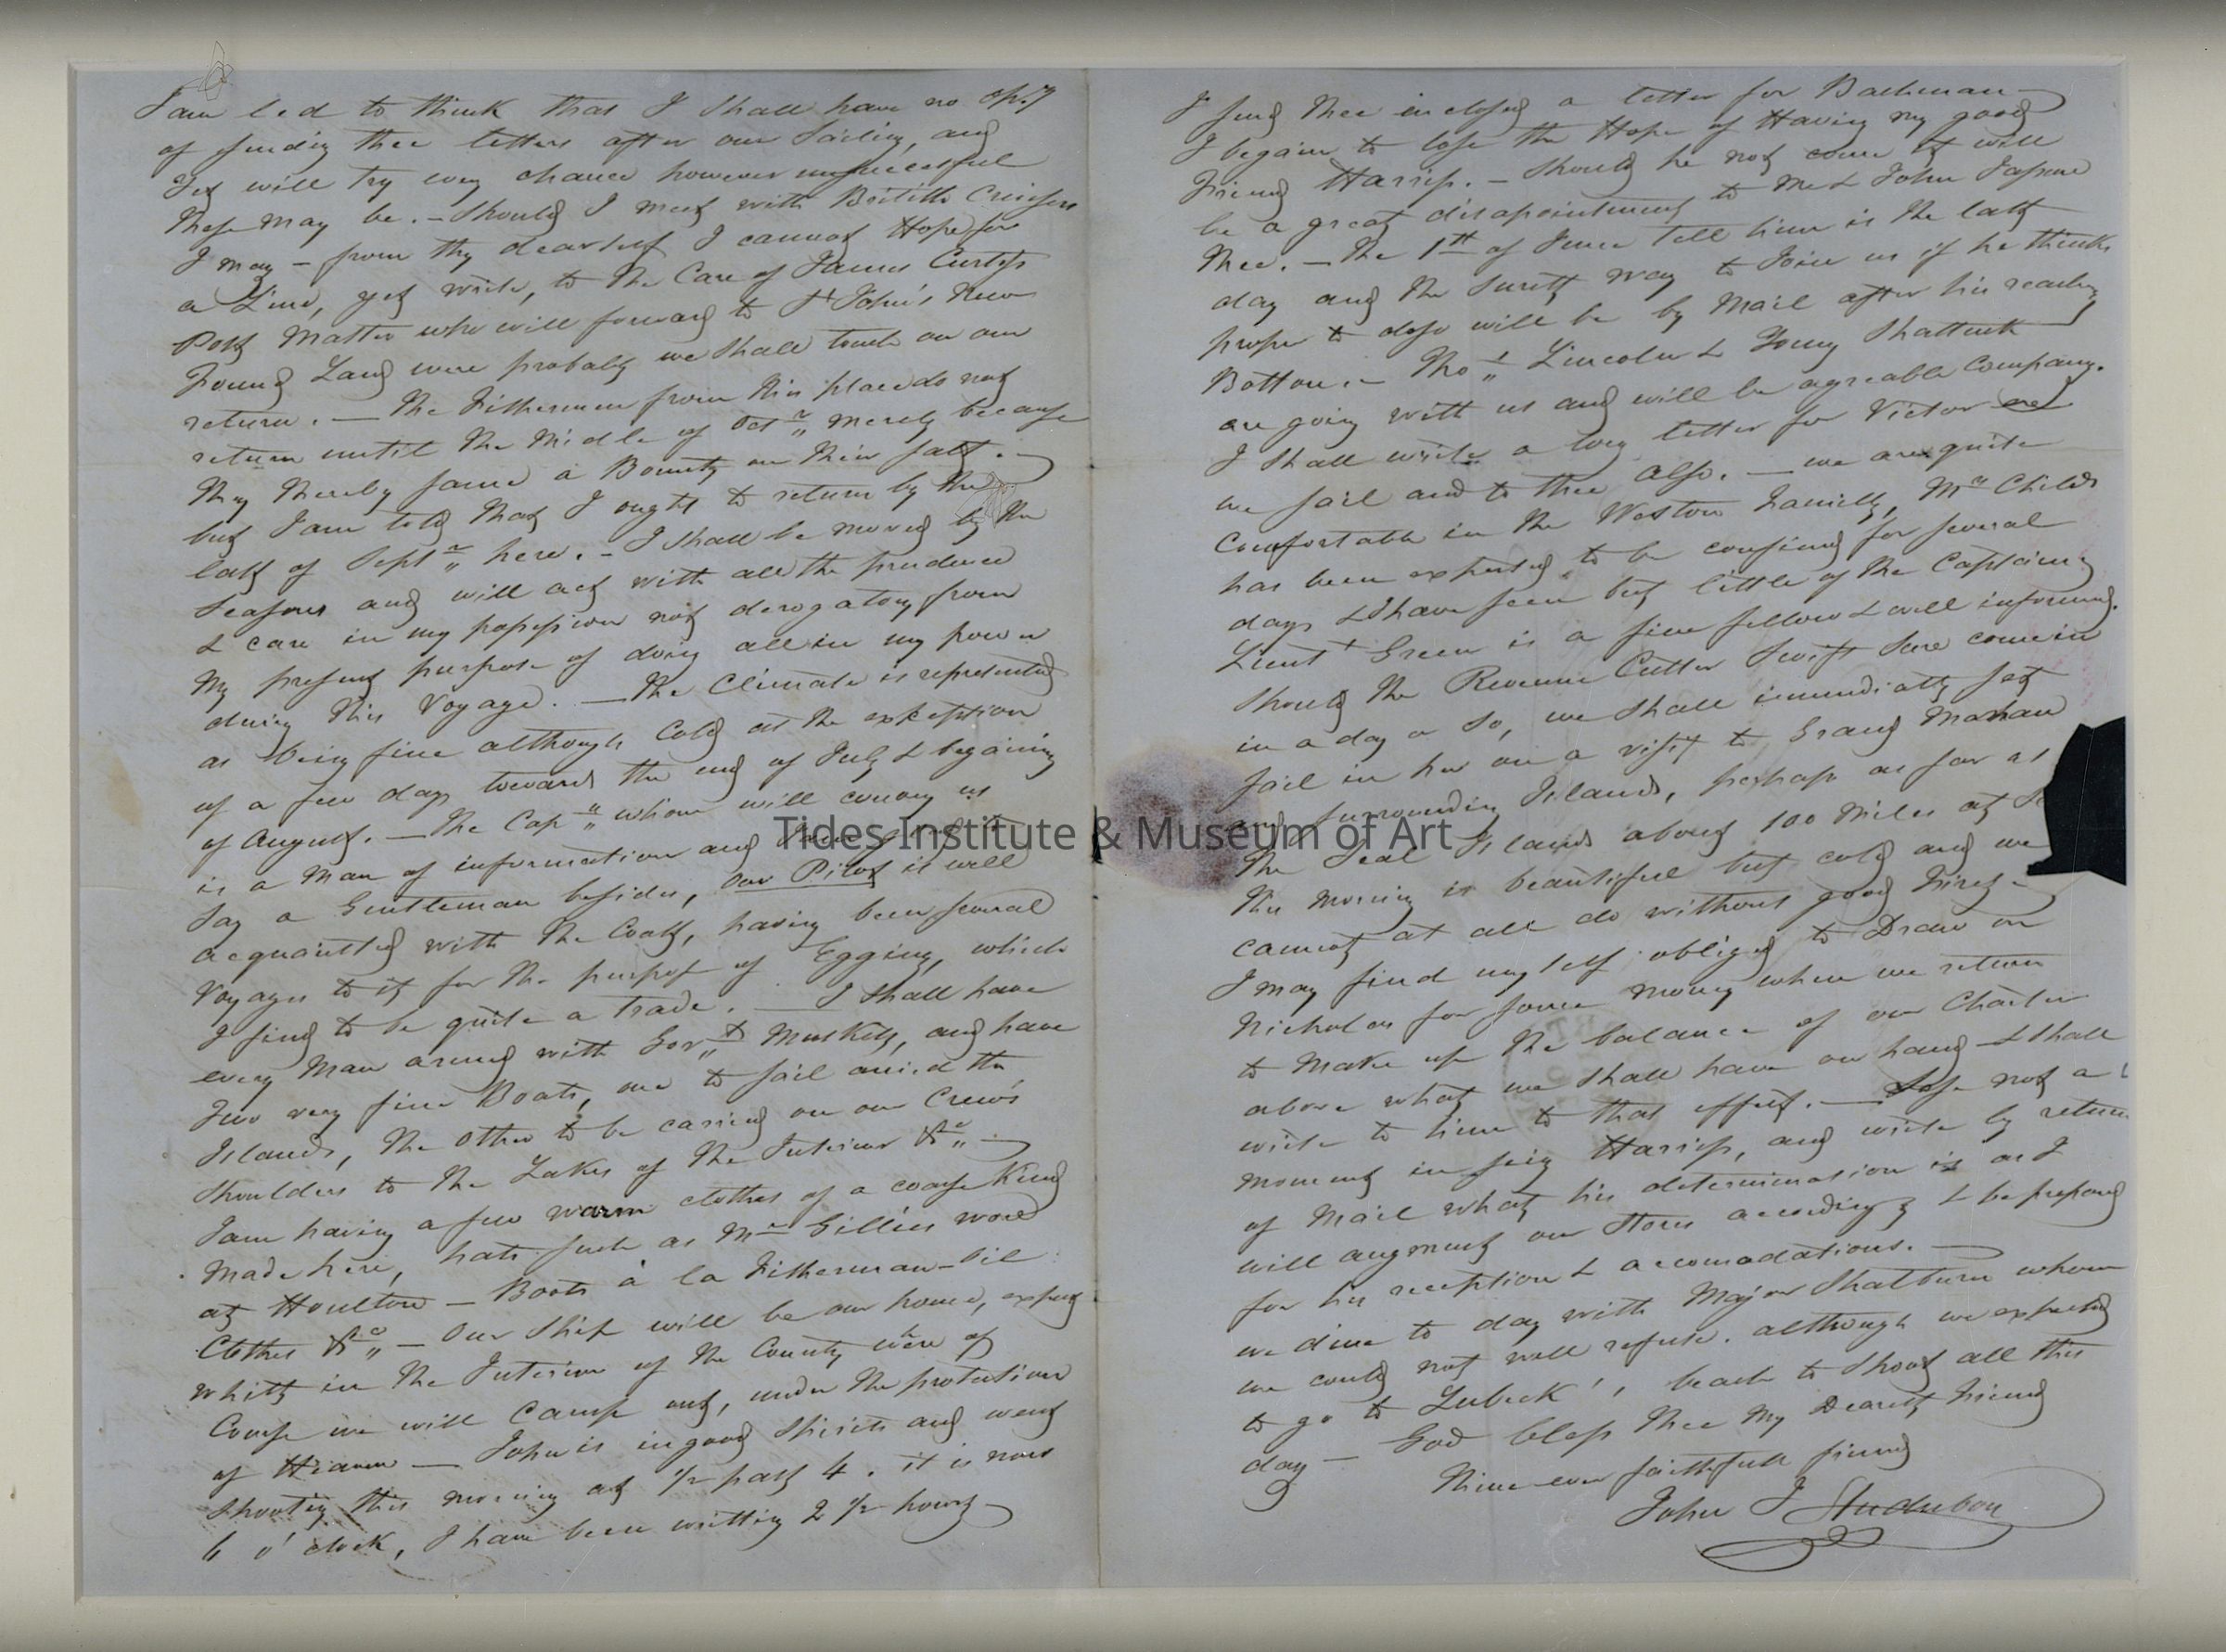 I am led to think that I shall have no op.ty
of sending thee letters after our Sailing, and
yet will try every chance however unsuccessful
these may be. – Should I meet with British Cruisers
I may – from thy dearself I cannot Hope for
a Line, yet write, to the Care of James Curtiss
Post Master who will forward to St John's New
Found Land were probably we shall touch on our
return. — The Fishermen from this place do not
return until the Midle of Octr merely because
they thereby saved a Bounty on their salt. —
but I am told that I ought to return by the
last of Septr here. – I shall be moved by the
Seasons and will act with all the prudence
& care in my possession not derogatory from
My present purpose of doing all in my power
during this Voyage. — The Climate is represented
as being fine although Cold at the exception
of a few days towards the end of July & begaining
of August. — The Capn whom will convey us
is a Man of information and
Say a Gentleman besides, Our Pilot is well
acquainted with the Coast, having been several
Voyages to it for the purpose of Egging, which
I find to be quite a trade. — I shall have
every Man armed with Govt Muskets, and have
Two very fine Boats, one to sail amid the
Islands, the other to be carried on our Crew's
Shoulders to the Lakes of the Interior &c —
I am having a few warm clothes of a coarse Kind
Made here, hats such as Mr Gillies wored
at Houlton — Boots à la Fisherman – Oil
Clothes &c — Our Ship will be our home, except
whilst in the Interior of the County where of
Course we will Camp out, under the protection
of Heaven — John is in good Spirits and went
shooting this morning at 1/2 past 4. it is now
6 o'clock, I have been writting 2 1/2 hours —
I send thee inclosed a letter for Bachman —
I begain to lose the Hope of Having my good
Friend Harris. – Should he not come it will
be a great disapointment to Me & John I assure
thee. — The 1st of June tell him is the last
day and the Surest way to Join us if he thinks
proper to doso will be by Mail after his reaching
Boston. – Thos Lincoln & Young Shattuck
are going with us and will be agreable Company.
I shall write a long letter for Victor ere
we sail and to thee also. — we are quite
Comfortable in the Weston Family, Mrs Childs
has been expected to be confined for several
days & I have seen but little of the Captain
Lieut Green is a fine fellow & well informed.
Should the Revenue Cutter Swift Sure come in
in a day or so, we shall immediatly set
sail in her on a visit to Grand Manan
and surrounding Islands, perhaps as far as
the Seal Islands about 100 Miles at
This Morning is beautiful but cold and we
cannot at all do without good Fires —
I may find myself obliged to Draw on
Nicholas for some money when we return
to Make up the balance of our Charter
above what we shall have on hand & I shall
write to him to that effect. — Lose not a
moment in seing Harris, and write by return
of Mail what his determination is as I
will augment our Stores accordingly & be prepared
for his reception & accomodations. —
we dine to day with Major Shatburn whom
we could not well refuse. although we expected
to go to Lubeck', beach to Shoot all this
day — God bless thee My Dearest Friend
Thine ever faithfull friend
John J Audubon
Tides Institute & Museum of Art